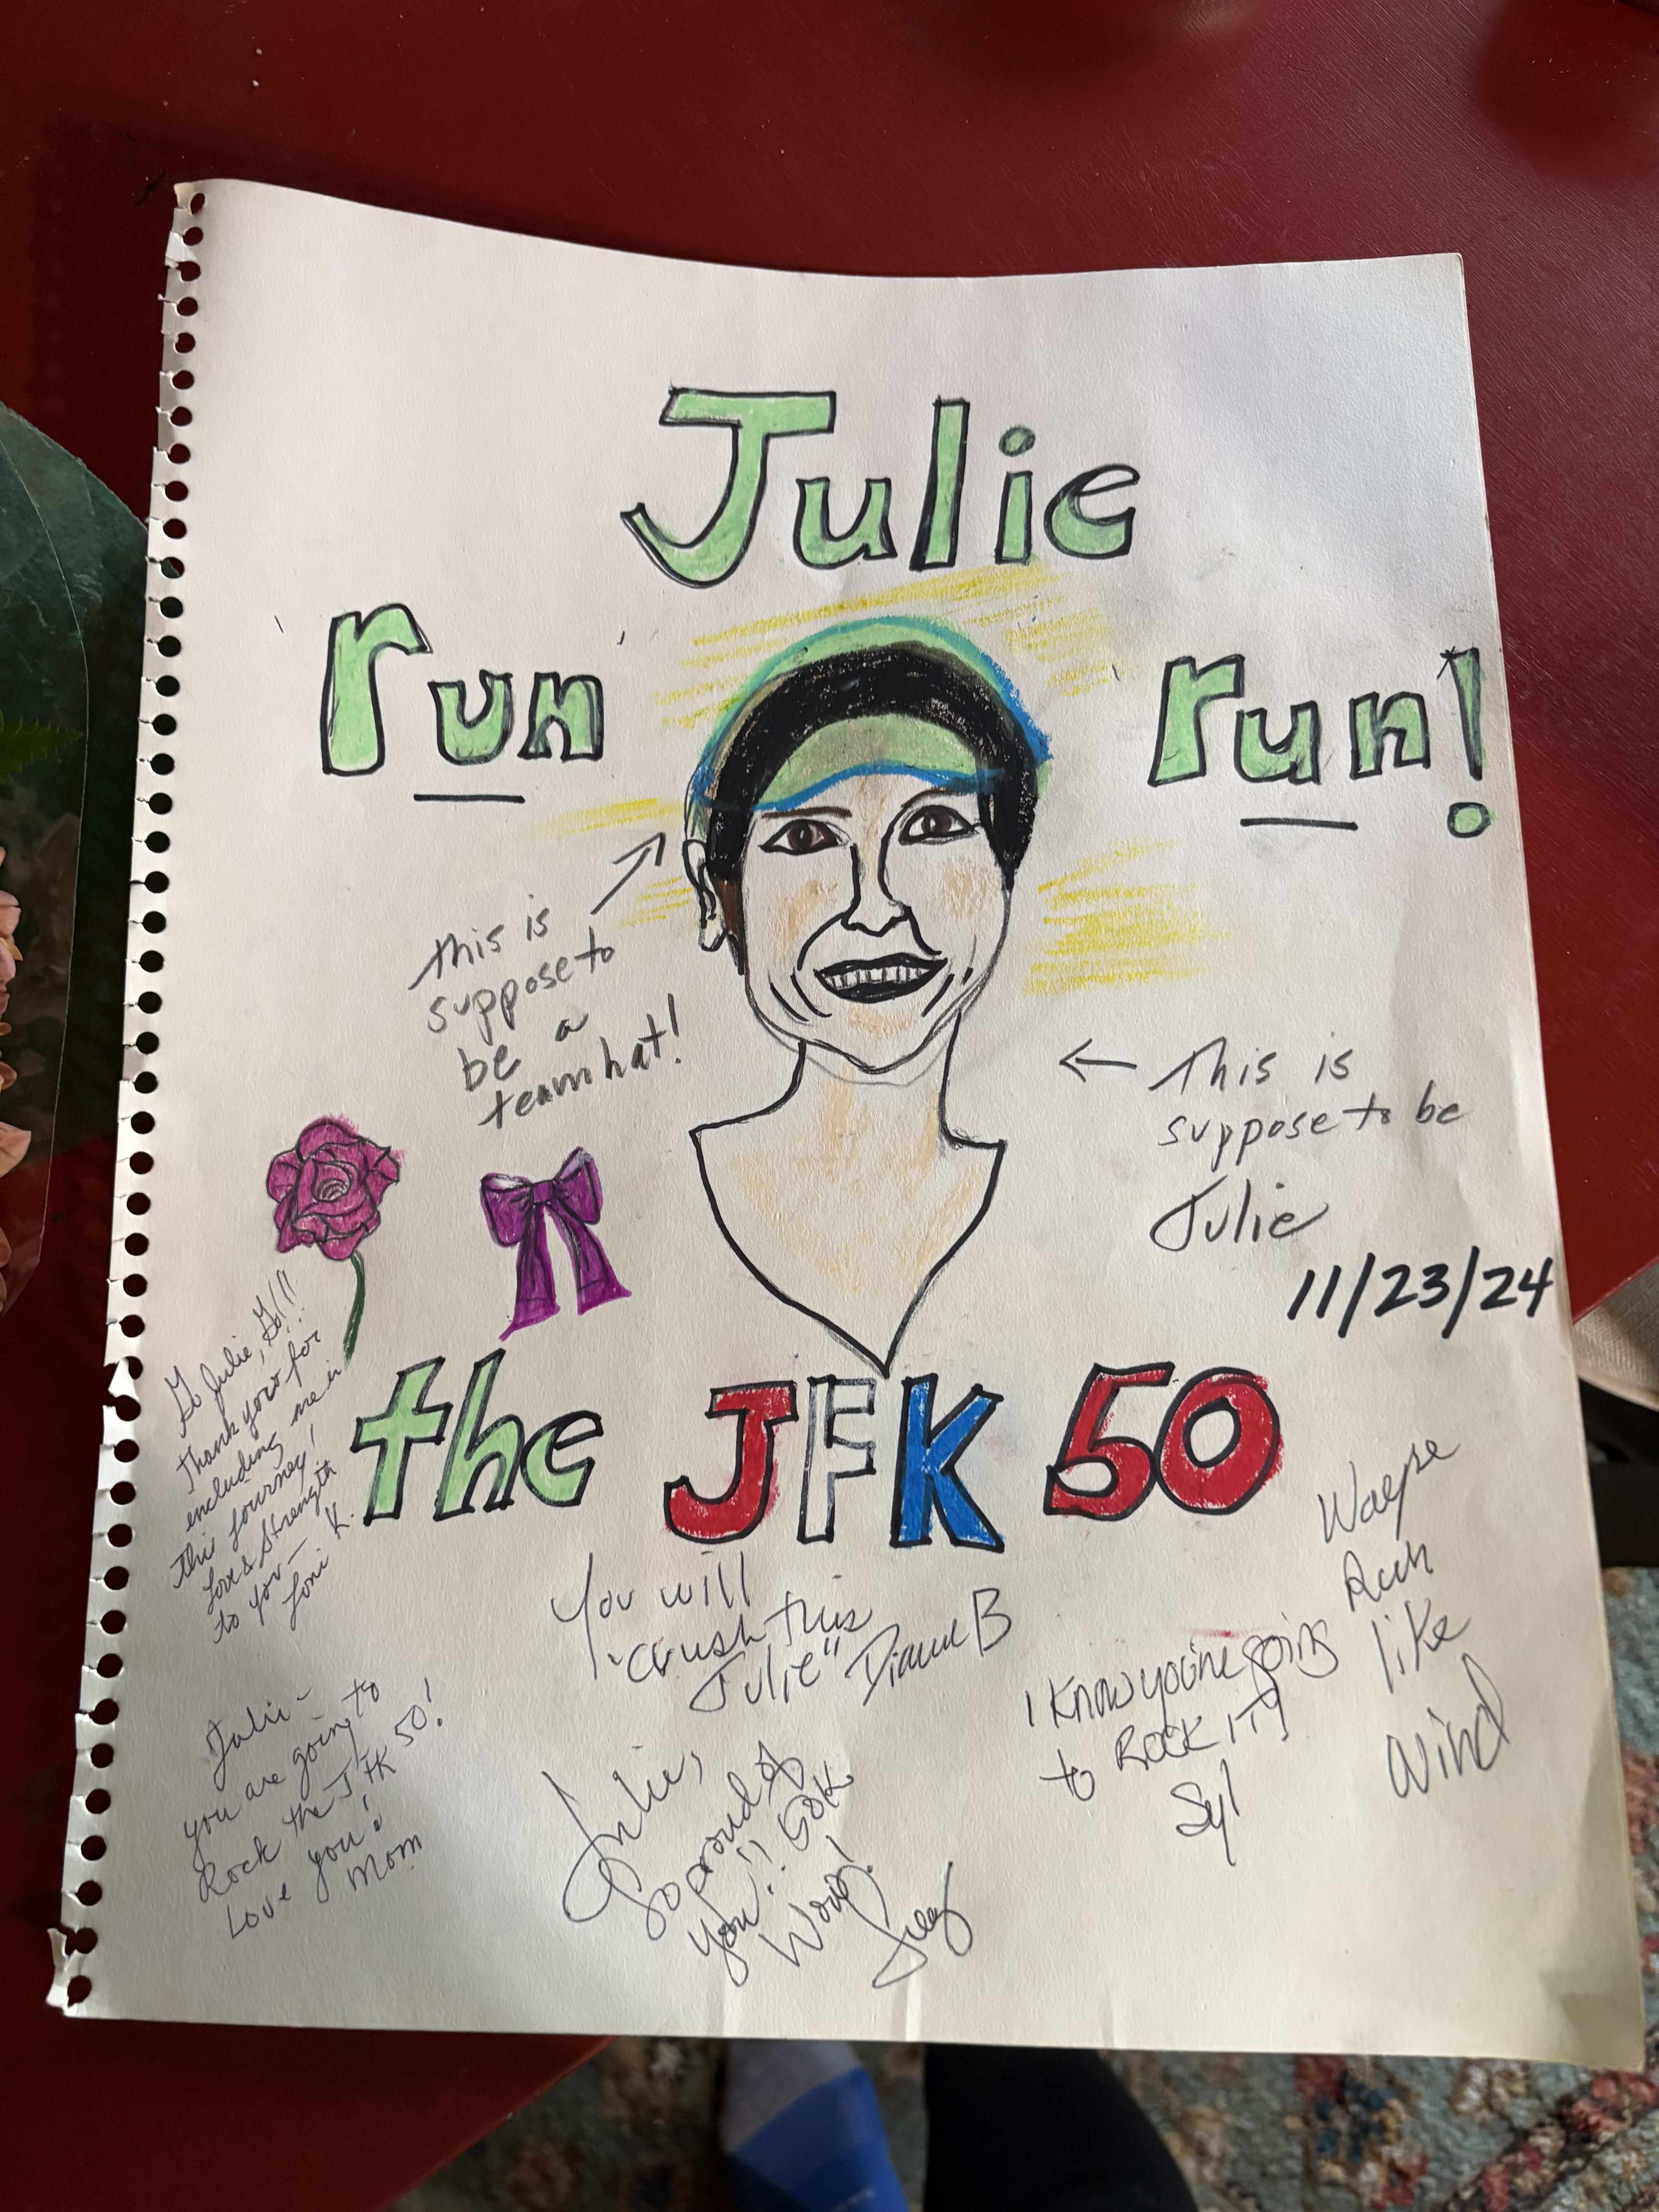 Julie
run run!
this is
suppose to
be a
team hat!
← This is
suppose to be
Julie
11/23/24
the JFK 50
Go Julie, Go!!!
Thank you for
including me in
this journey!
Love & Strength
to you —
Loni K.
You will
"crush this
Julie" Diane B
Julie -
you are going to
Rock the JFK 50!
Love you!
Mom
Julie,
So proud of
you!! 50K
Wow!
I know you're going
to ROCK IT!
Syl
Run
like
Wind